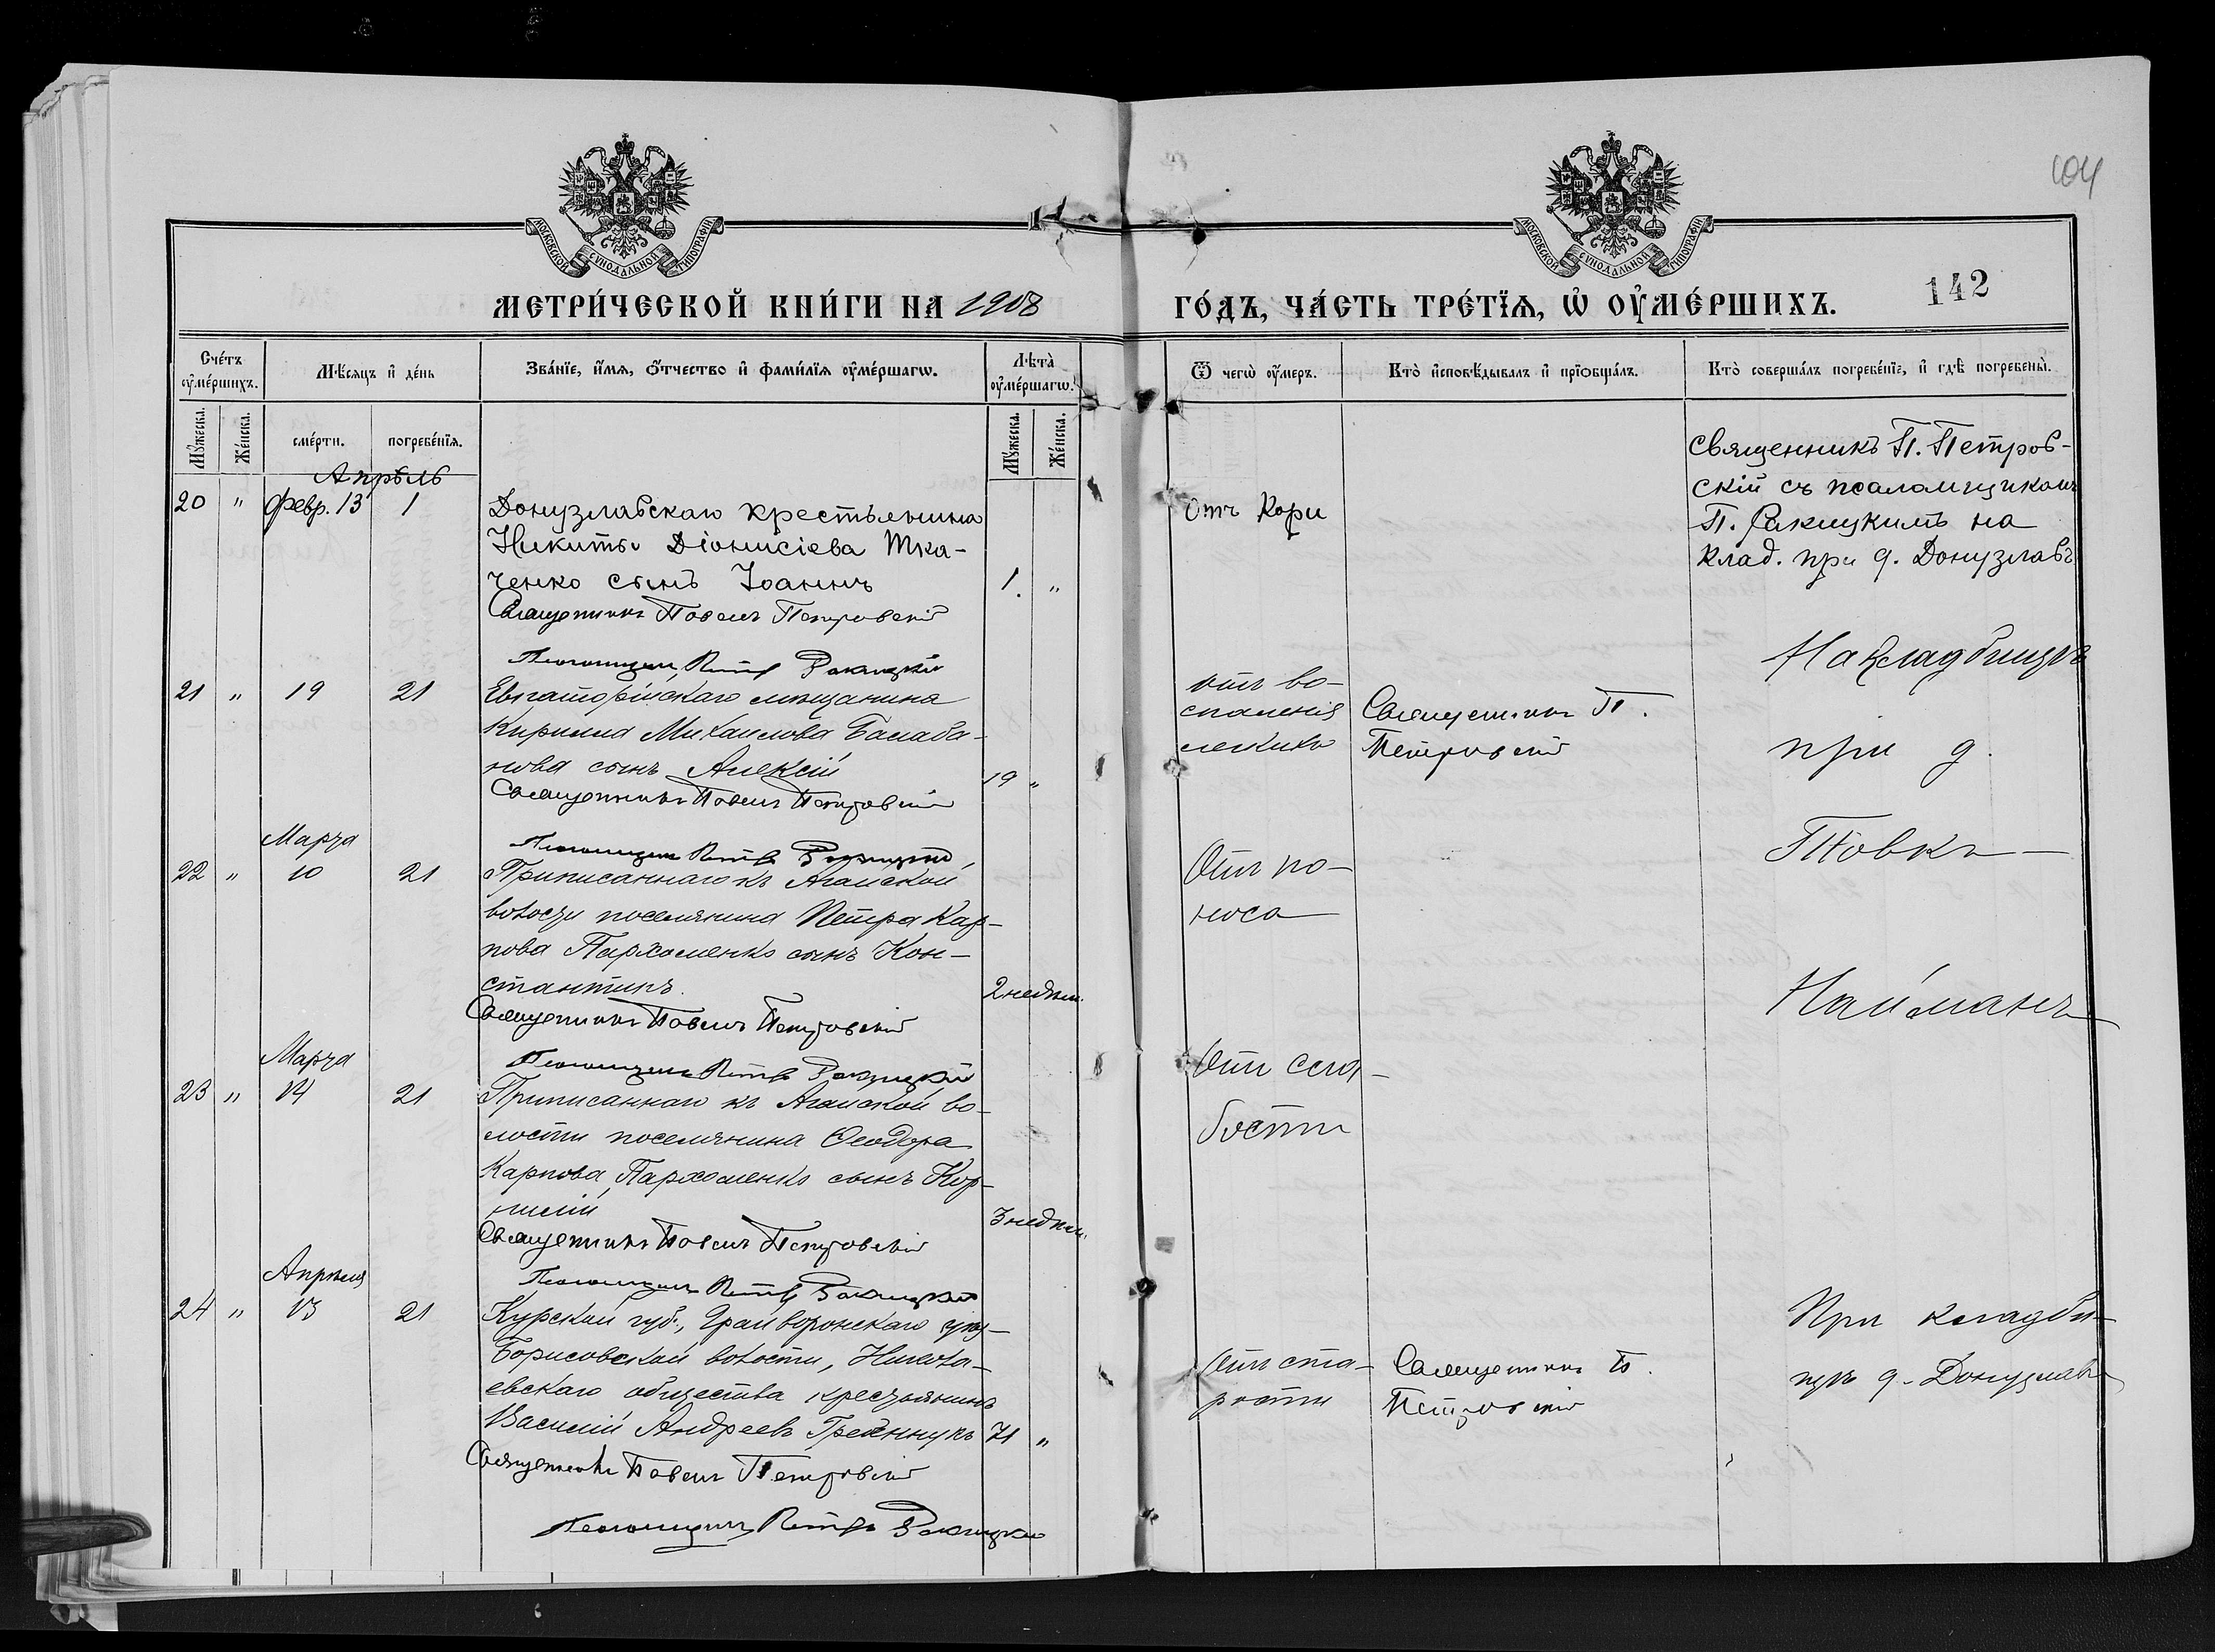 104
МОСКОВСКОЙ СУНОДАЛЬНОЙ ТИПОГРАФІИ
МОСКОВСКОЙ СУНОДАЛЬНОЙ ТИПОГРАФІИ
142
МЕТРИ́ЧЕСКОЙ КНИ́ГИ НА 1908
ГО́ДЪ, ЧА́СТЬ ТРЕ́ТЇѦ, Ѡ҆ ОУ҆МЕ́РШИХЪ.
Сче́тъ оу҆ме́ршихъ.
Мѣ́сяцъ и҆ де́нь
Зва́нїе, и҆́мя, ѻ҆́тчество и҆ фами́лїя оу҆ме́ршагѡ.
Лѣта̀ оу҆ме́ршагѡ.
Ѿ чегѡ̀ оу҆́меръ.
Кто̀ и҆сповѣ́дывалъ и҆ прїѡбща́лъ.
Кто̀ соверша́лъ погребе́нїе, и҆ гдѣ̀ погребены̀.
Мꙋ́жеска.
Же́нска.
сме́рти.
погребе́нїя.
Мꙋ́жеска.
Же́нска.
Апрѣль
20 " Февр. 13 1
Донузлавскаго крестьянина
Никиты Діонисіева Тка-
ченко сынъ Іоаннъ 1. "
Священникъ Павелъ Петровскій
Псаломщикъ Петръ Ракицкій
Отъ Кори
Священникъ П. Петров-
скій съ псаломщикомъ
П. Ракицкимъ на
Клад. при д. Донузлавъ
21 " 19 21
Евпаторійскаго мѣщанина
Кирилла Михаилова Балаба-
нова сынъ Алексій 19 "
Священникъ Павелъ Петровскій
Псаломщикъ Петръ Ракицкій
отъ во-
спаленія
легкихъ
Священникъ П.
Петровскій
На Кладбищѣ
при д.
22 " Марта 10 21
Приписаннаго къ Агайской
волости поселянина Петра Кар-
пова Пархоменко сынъ Кон-
стантинъ. 2 недѣли.
Священникъ Павелъ Петровскій
Псаломщикъ Петръ Ракицкій
Отъ по-
носа
Найманъ
23 " Марта 14 21
Приписаннаго къ Агайской во-
лости поселянина Ѳеодора
Карпова Пархоменко сынъ Кор-
нилій 3 недѣли.
Священникъ Павелъ Петровскій
Псаломщикъ Петръ Ракицкій
Отъ сла-
бости
24 " Апрѣля 13 21
Курской губ., Грайворонскаго уѣз-
Борисовской волости, Никола-
евскаго общества крестьянинъ
Василій Андреевъ 71 "
Священникъ Павелъ Петровскій
Псаломщикъ Петръ Ракицкій
Отъ ста-
рости
Священникъ П.
Петровскій
При кладби-
щѣ д. Донузлавъ